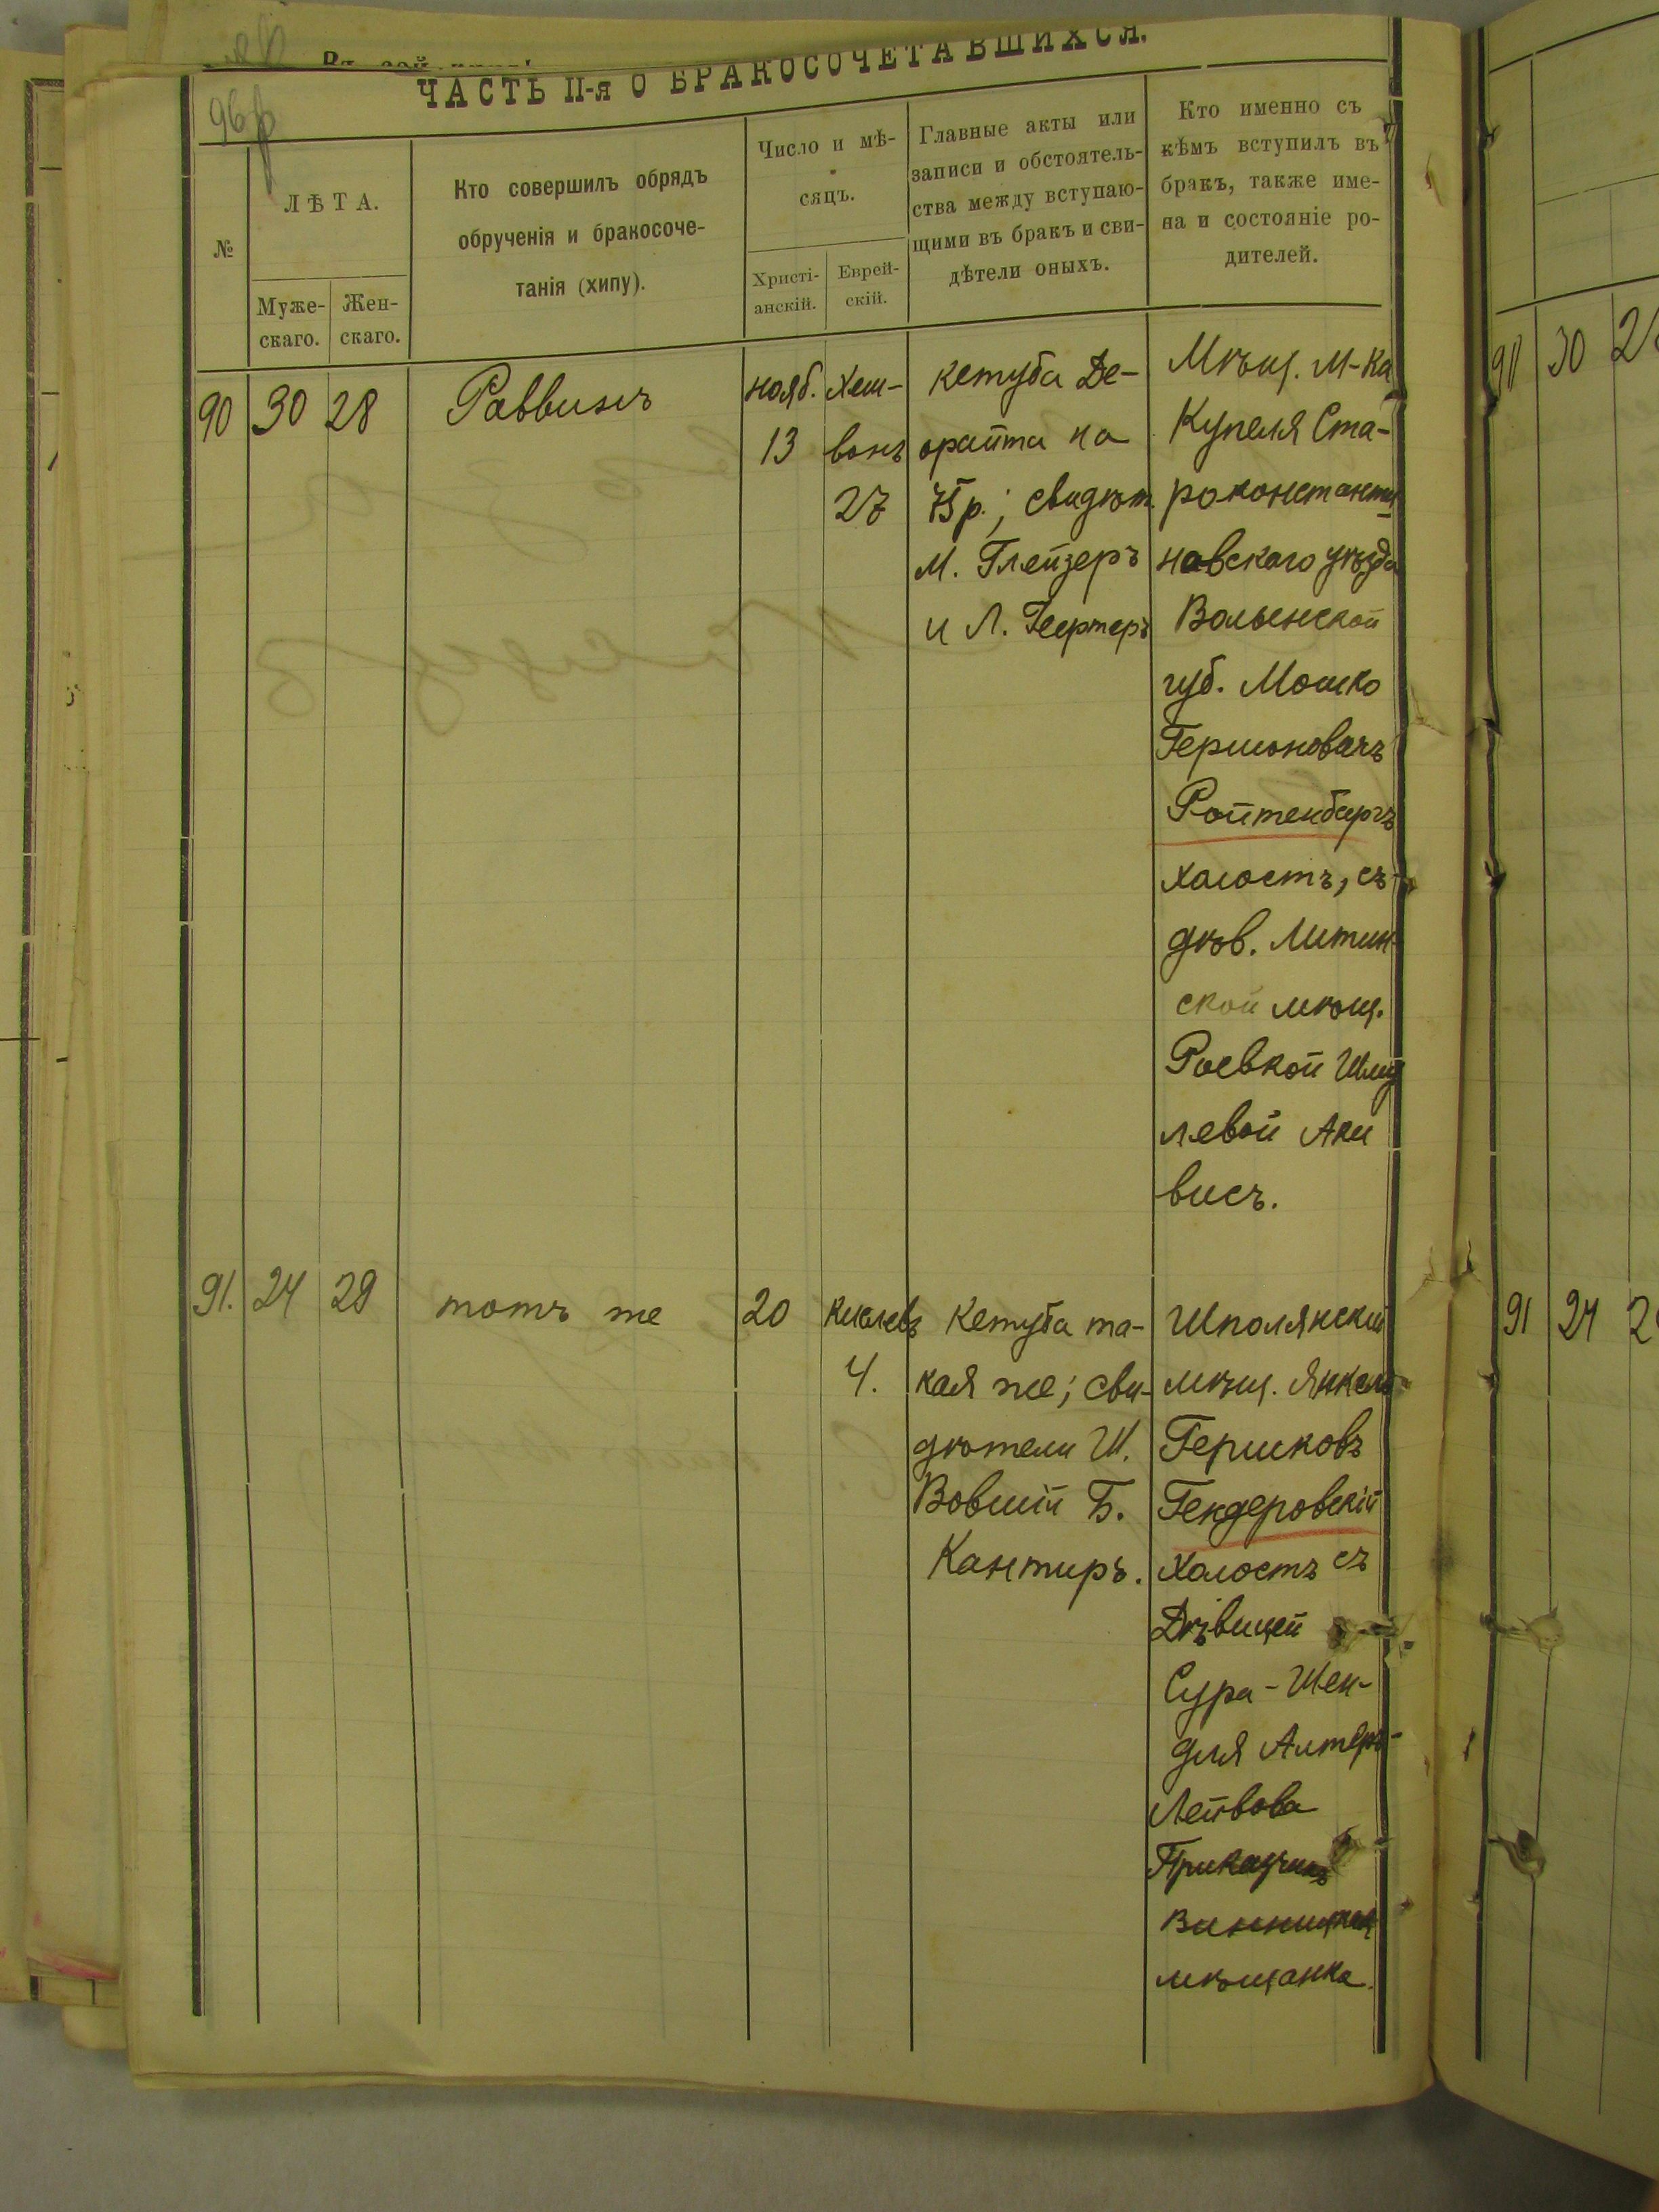 ЧАСТЬ II-я О БРАКОСОЧЕТАВШИХСЯ.
96
№
ЛѢТА.
Муже-
скаго.
Жен-
скаго.
Кто совершилъ обрядъ
обрученія и бракосоче-
танія (хипу).
Число и мѣ-
сяцъ.
Христі-
анскій.
Еврей-
скій.
Главные акты или
записи и обстоятель-
ства между вступаю-
щими въ бракъ и сви-
дѣтели оныхъ.
Кто именно съ
кѣмъ вступилъ въ
бракъ, также име-
на и состояніе ро-
дителей.
90
30
28
Раввинъ
нояб.
13
Хеш-
вонъ
27
кетуба Де-
орайта на
75 р.; свидѣт.
М. Глейзеръ
и Л. Гертеръ
Мѣщ. м-ка
Купеля Ста-
роконстанти
новскаго уѣзда
Волынской
губ. Мошко
Гершоновичъ
Ройтенбергъ
холостъ, съ
дѣв. Литин-
ской мѣщ.
Ривкой Шму
левой Аки
висъ.
91.
24
29
тотъ же
20
Кислевъ
4.
Кетуба та-
кая же; сви-
дѣтели Ш.
Вовшій Б.
Кантиръ.
Шполянскій
мѣщ. Янкель
Гершковъ
Гендеровскій
холостъ съ
Дѣвицей
Сура-Шен-
для Алтеръ-
Лейбова
Приказчикъ
Винницкая
мѣщанка.
91
30
91
24